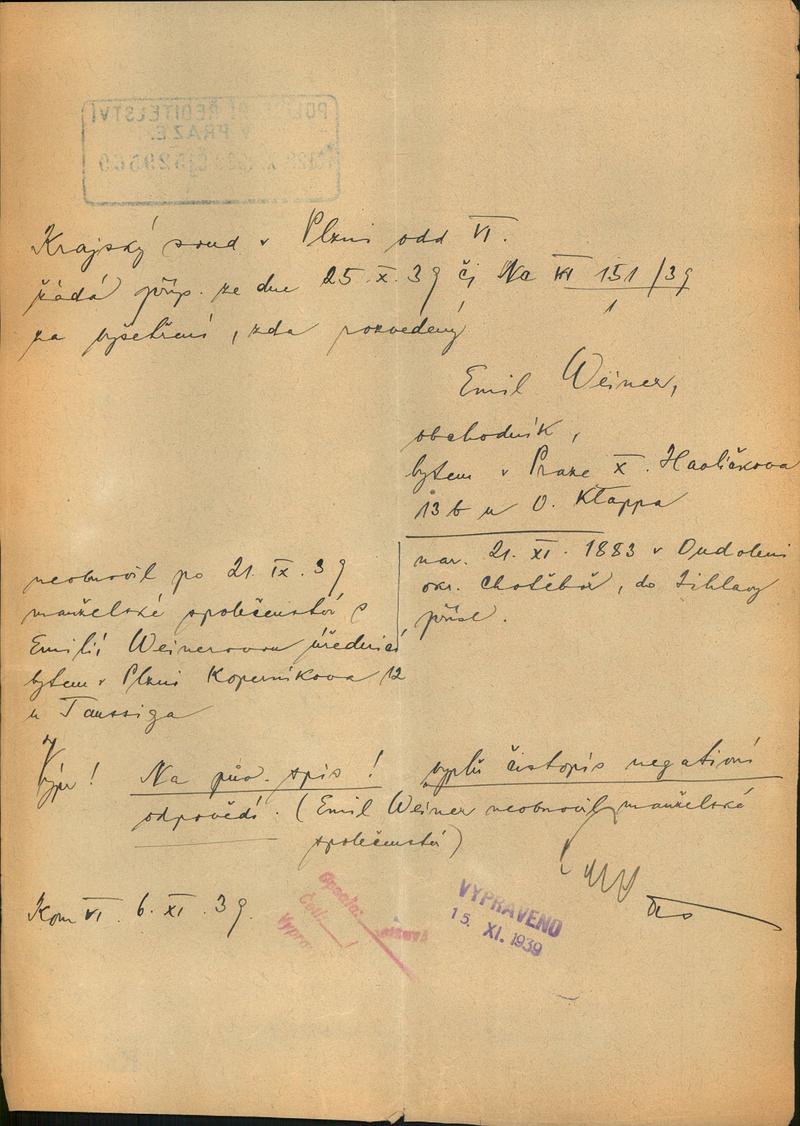 POLICEJNÍ ŘEDITELSTVÍ
V PRAZE.
Krajský soud v Plzni odd VI.
žádá příp. ze dne 25. X. 39 čj Nc VII 151/39
za vyšetření, zda rozvedený
Emil Weiner,
obchodník,
bytem v Praze X. Havlíčkova
13 b u O. Klappa
nar. 21. XI. 1883 v Ondoleni
okr. Chotěboř, do Jihlavy
přísl.
neobnovil po 21. IX. 39
manželské společenství s
Emilií Weinerovou úřednicí
bytem v Plzni Koperníkova 12
u Taussiga
Na pův. spis! vyplň čistopis negativní
odpovědí. (Emil Weiner neobnovil manželské
společenství)
Kom VI. 6. XI. 39.
Opsala:
Četl:
VYPRAVENO
15. XI. 1939